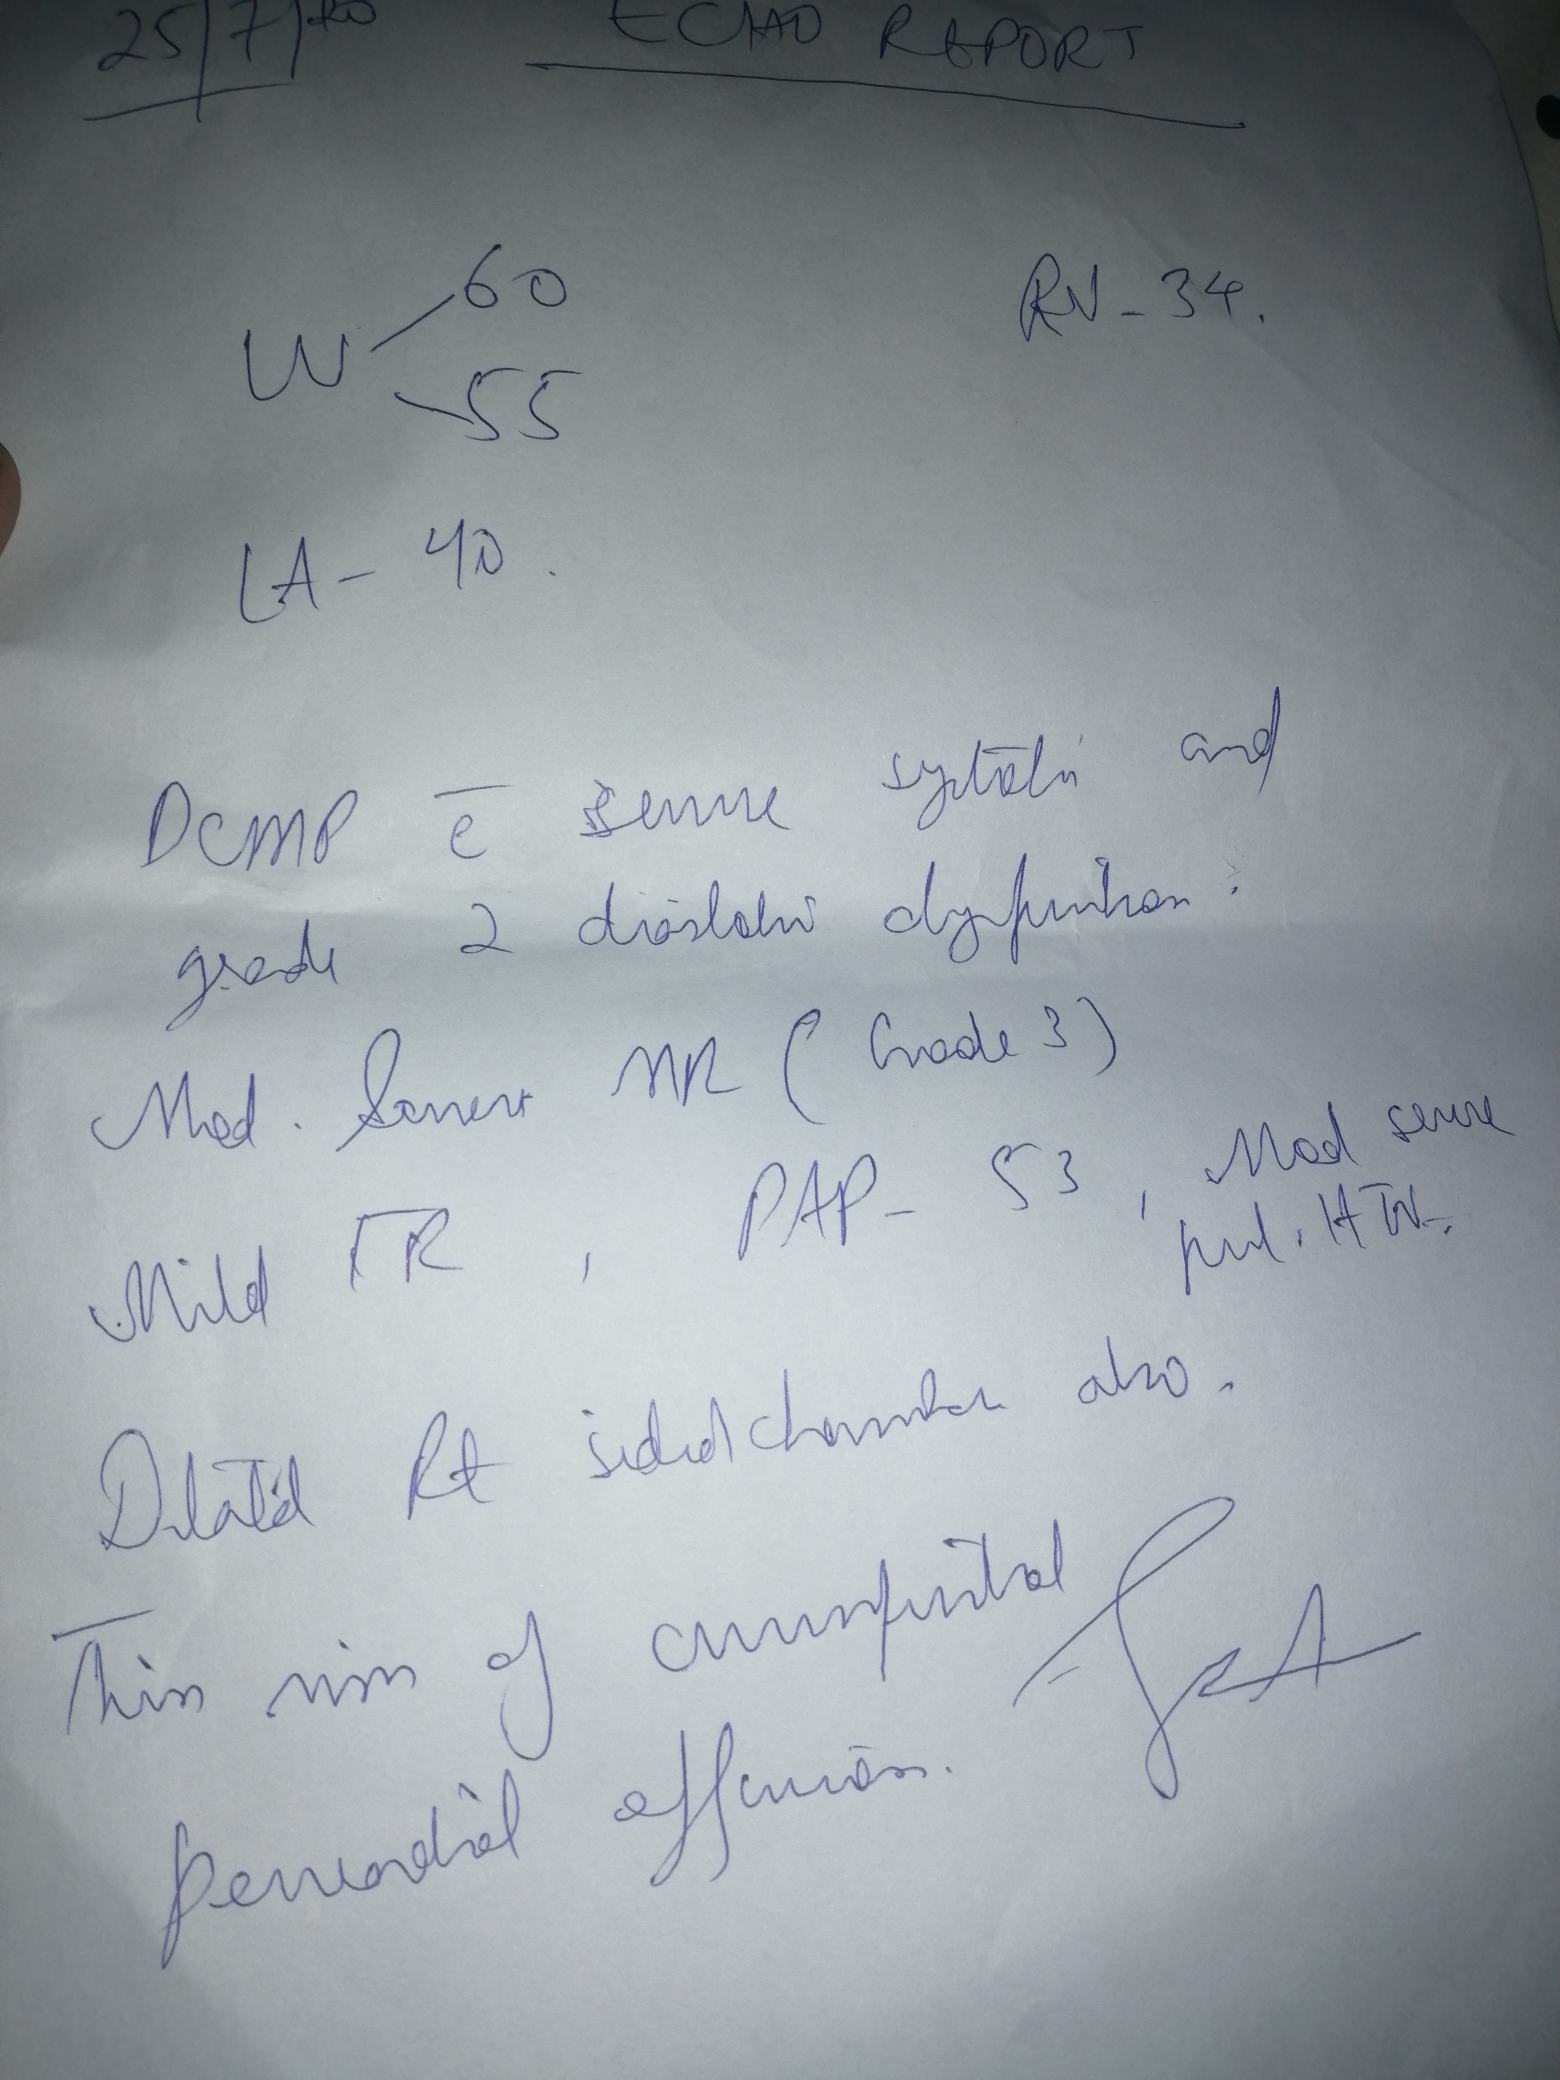 25/7/20 ECHO REPORT
LV 60 RV - 34.
55
LA - 40.
DCMP c̄ severe systolic and
grade 2 diastolic dysfunction.
Mod. Severe MR ( Grade 3 )
Mild TR , PAP - 53 , Mod severe
pul. HTN.
Dilated Rt sided chamber also.
Thin rim of circumferential
pericardial effusion.